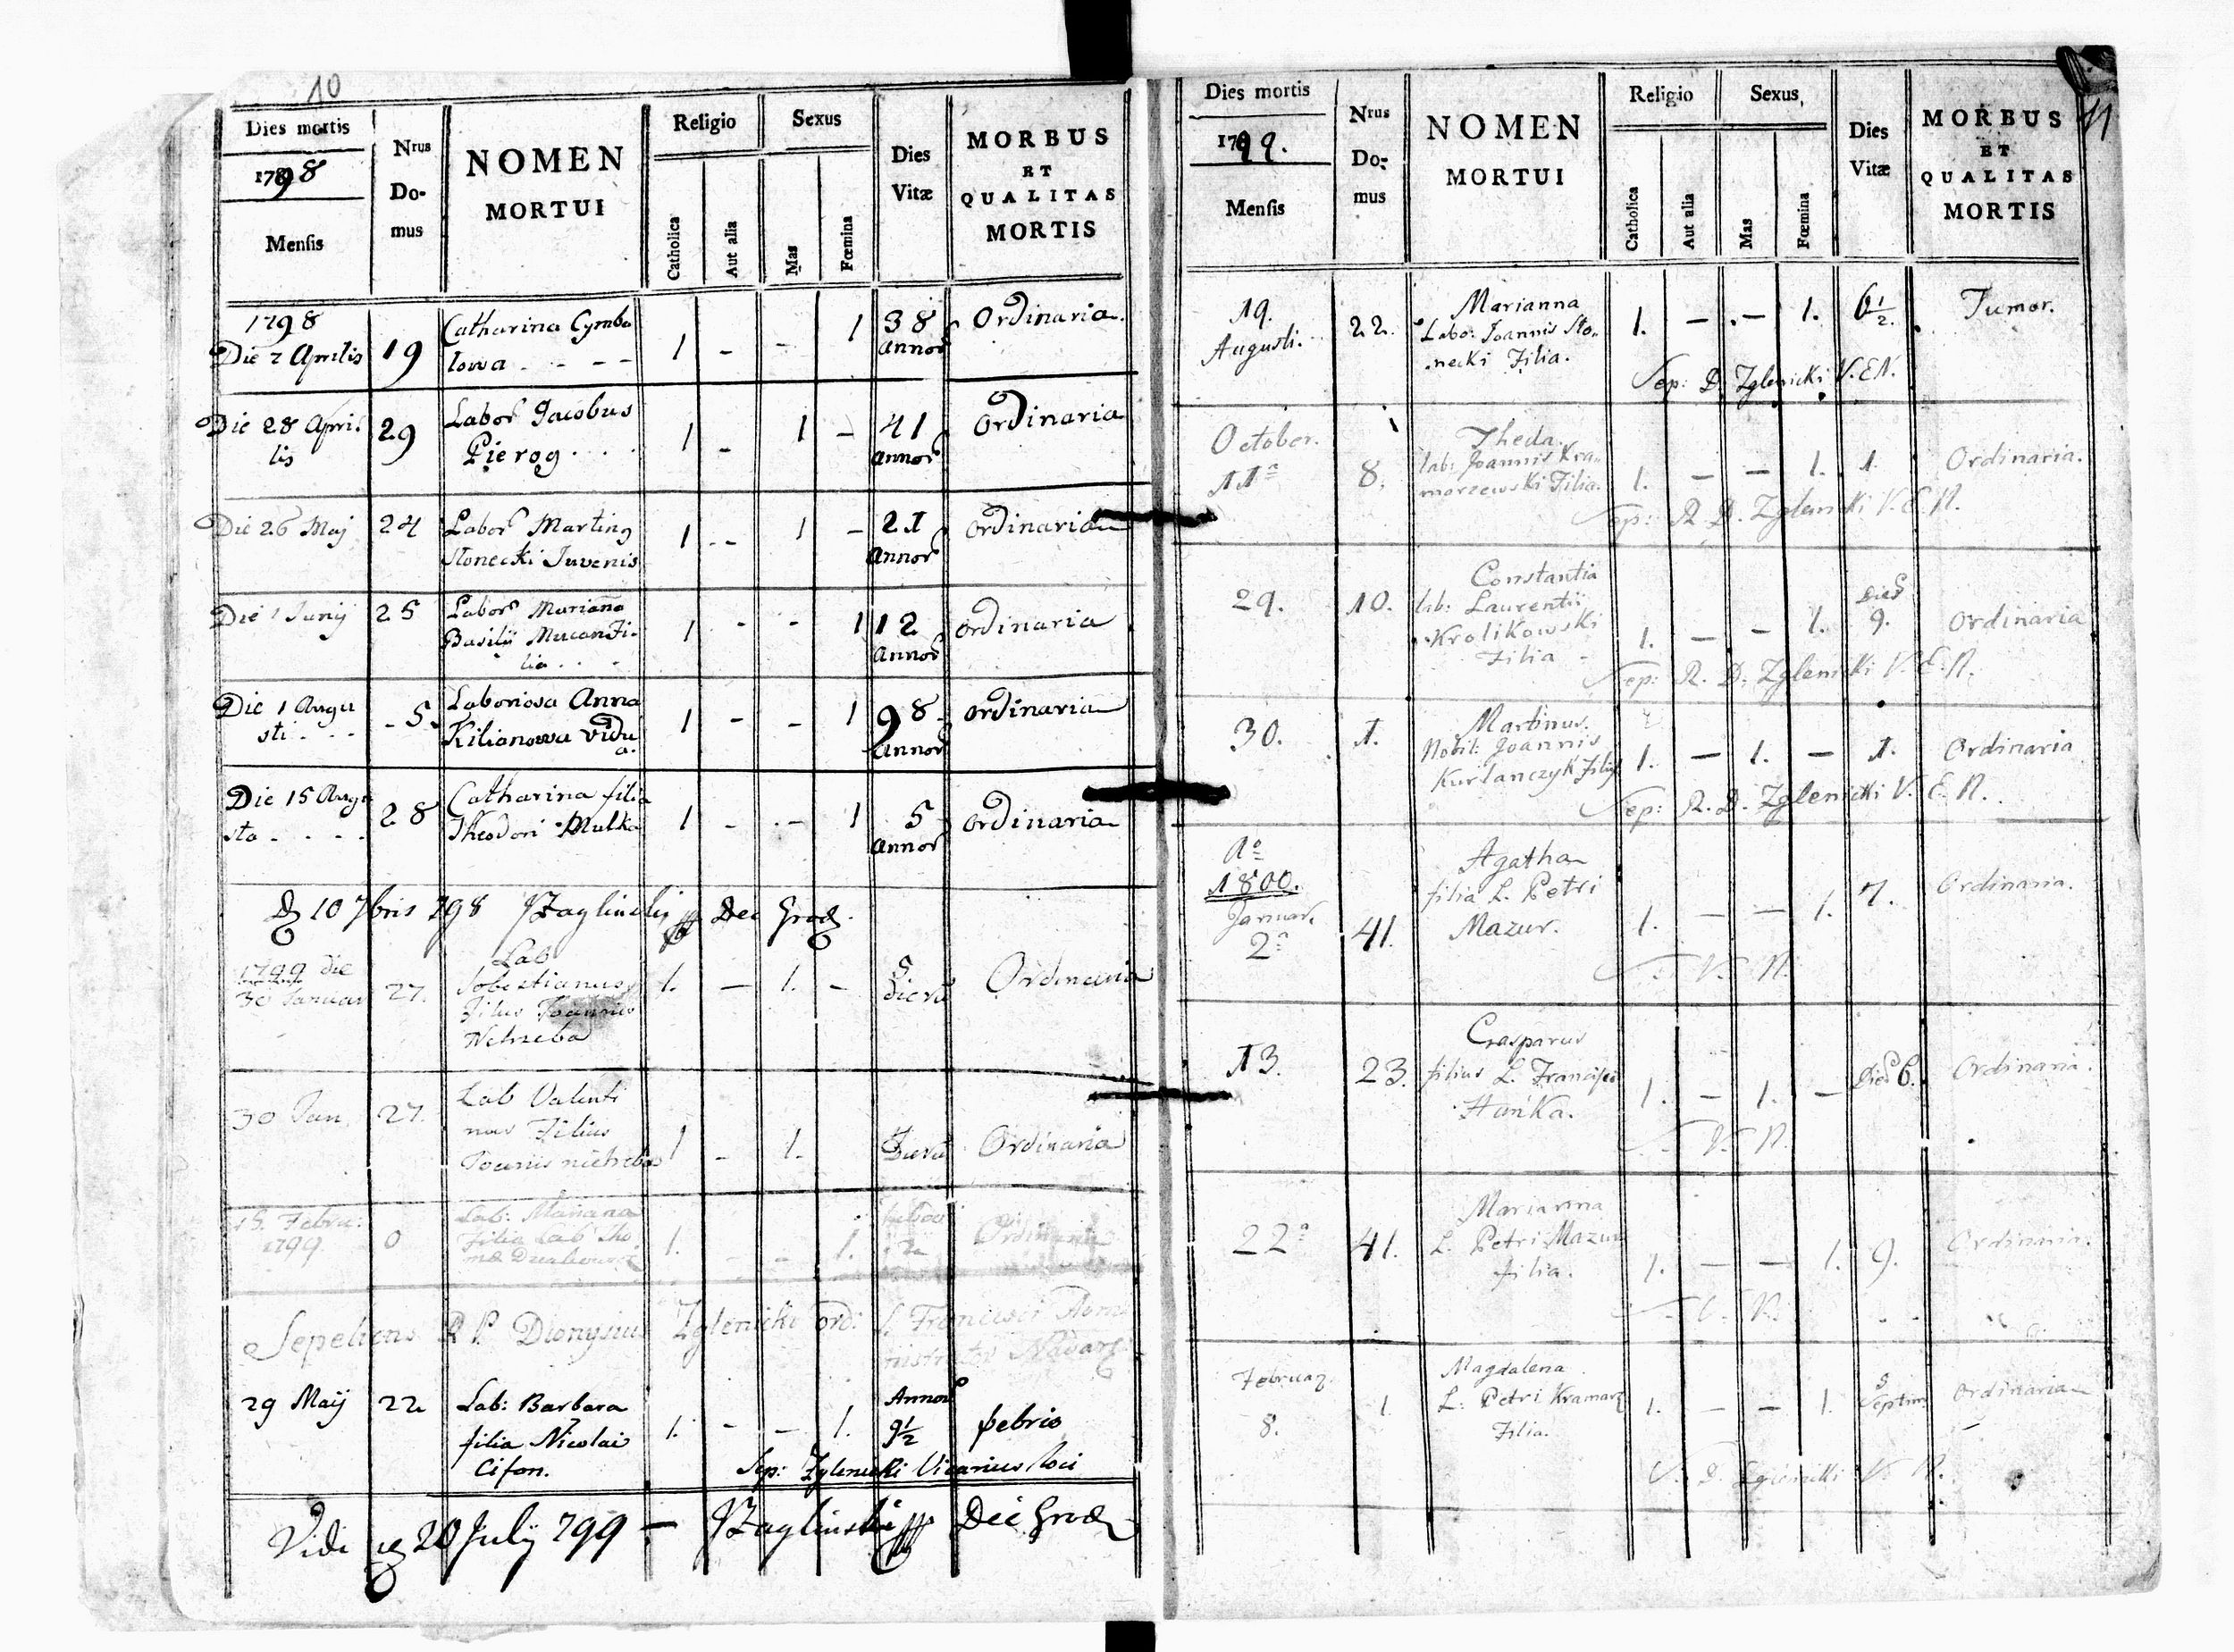 10
Dies mortis
1798
Mensis
Nrus
Do-
mus
NOMEN
MORTUI
Religio
Catholica
Aut alia
Sexus
Mas
Fœmina
Dies
Vitæ
MORBUS
ET
QUALITAS
MORTIS
1798
Die 2 Aprilis
19
Catharina Cymba
lowa - - -
1 - - 1
38
Annor
Ordinaria.
Die 28 Apri
lis
29
Labor Jacobus
Pierog . . .
1 - 1 -
41
Annor
Ordinaria
Die 26 Maj
24
Labor Martinq
Slonecki Juvenis
1 - - 1 -
21
Annor
Ordinaria
Die 1 Junij
25
Labor Mariana
Basilii Mucan Fi-
lia . . .
1 - - 1
12
Annor
Ordinaria
Die 1 Augu
sti . . .
5.
Laboriosa Anna
Kilianowa Vidu
a.
1 - - 1
98
Annor
Ordinaria
Die 15 Augu
sta . . . .
28
Catharina filia
Theodori Mulka
1 - - 1
5
Annor
Ordinaria
10 7bris 798 Zaglinski Dec Grod
1799 die
30 Januar
27.
Lab
Sobestianus
Filius Joannis
Nehreba
1. - 1. -
5
Dieru
Ordinaria
30 Jan
27.
Lab Valenti
nus Filius
Joanis niehreba
1 - 1.
Dieru
Ordinaria
15. Febru:
1799.
0
Lab: Mariana
Filia Lab Tho
1. - - 1.
Ordinaria
Sepeliens R P. Dionysius Zglenicki ord: S. Francisci
29 Maij
22
Lab: Barbara
filia Nicolai
Cifon.
1. - - 1.
Annor
9 1/2
febris
Sep: Zglenicki Vicarius loci
Vidi 20 Julij 799 - Zaglinski Dec Grod
11
Dies mortis
1799.
Mensis
Nrus
Do-
mus
NOMEN
MORTUI
Religio
Catholica
Aut alia
Sexus
Mas
Fœmina
Dies
Vitæ
MORBUS
ET
QUALITAS
MORTIS
19.
Augusti.
22.
Marianna
Labo: Joannis Slo-
necki Filia.
1. - - 1.
6 1/2.
Tumor.
Sep: D. Zglenicki V. E N.
October.
11a
8.
Theda.
lab: Joannis Kra-
morzewski Filia.
1. - - 1.
1.
Ordinaria.
Sep: R. D. Zglenicki V. E. N.
29.
10.
Constantia
lab: Laurentii
Krolikowski
Filia -
1. - - 1.
Dies
9.
Ordinaria
Sep: R. D. Zglenicki V. E. N.
30.
1.
Martinus.
Nobil: Joannis
Kurlanczyk Filiq
1. - 1. -
1.
Ordinaria
Sep: R. D. Zglenicki V. E. N.
Ao
1800.
Januar.
2a
41.
Agatha
filia L. Petri
Mazur.
1. - - 1.
7.
Ordinaria.
S. V. N.
13.
23.
Casparus
filius L. Francisci
Huńka.
1. - 1. -
Dies 6.
Ordinari.
S. V. N.
22a
41.
Marianna
L. Petri Mazur
filia.
1. - - 1.
9.
Ordinaria.
S. V. N.
Februar.
8.
1.
Magdalena
L: Petri Kramarz
Filia.
1. - - 1.
8
Septim
Ordinaria
S. D. Zglenicki V. N.